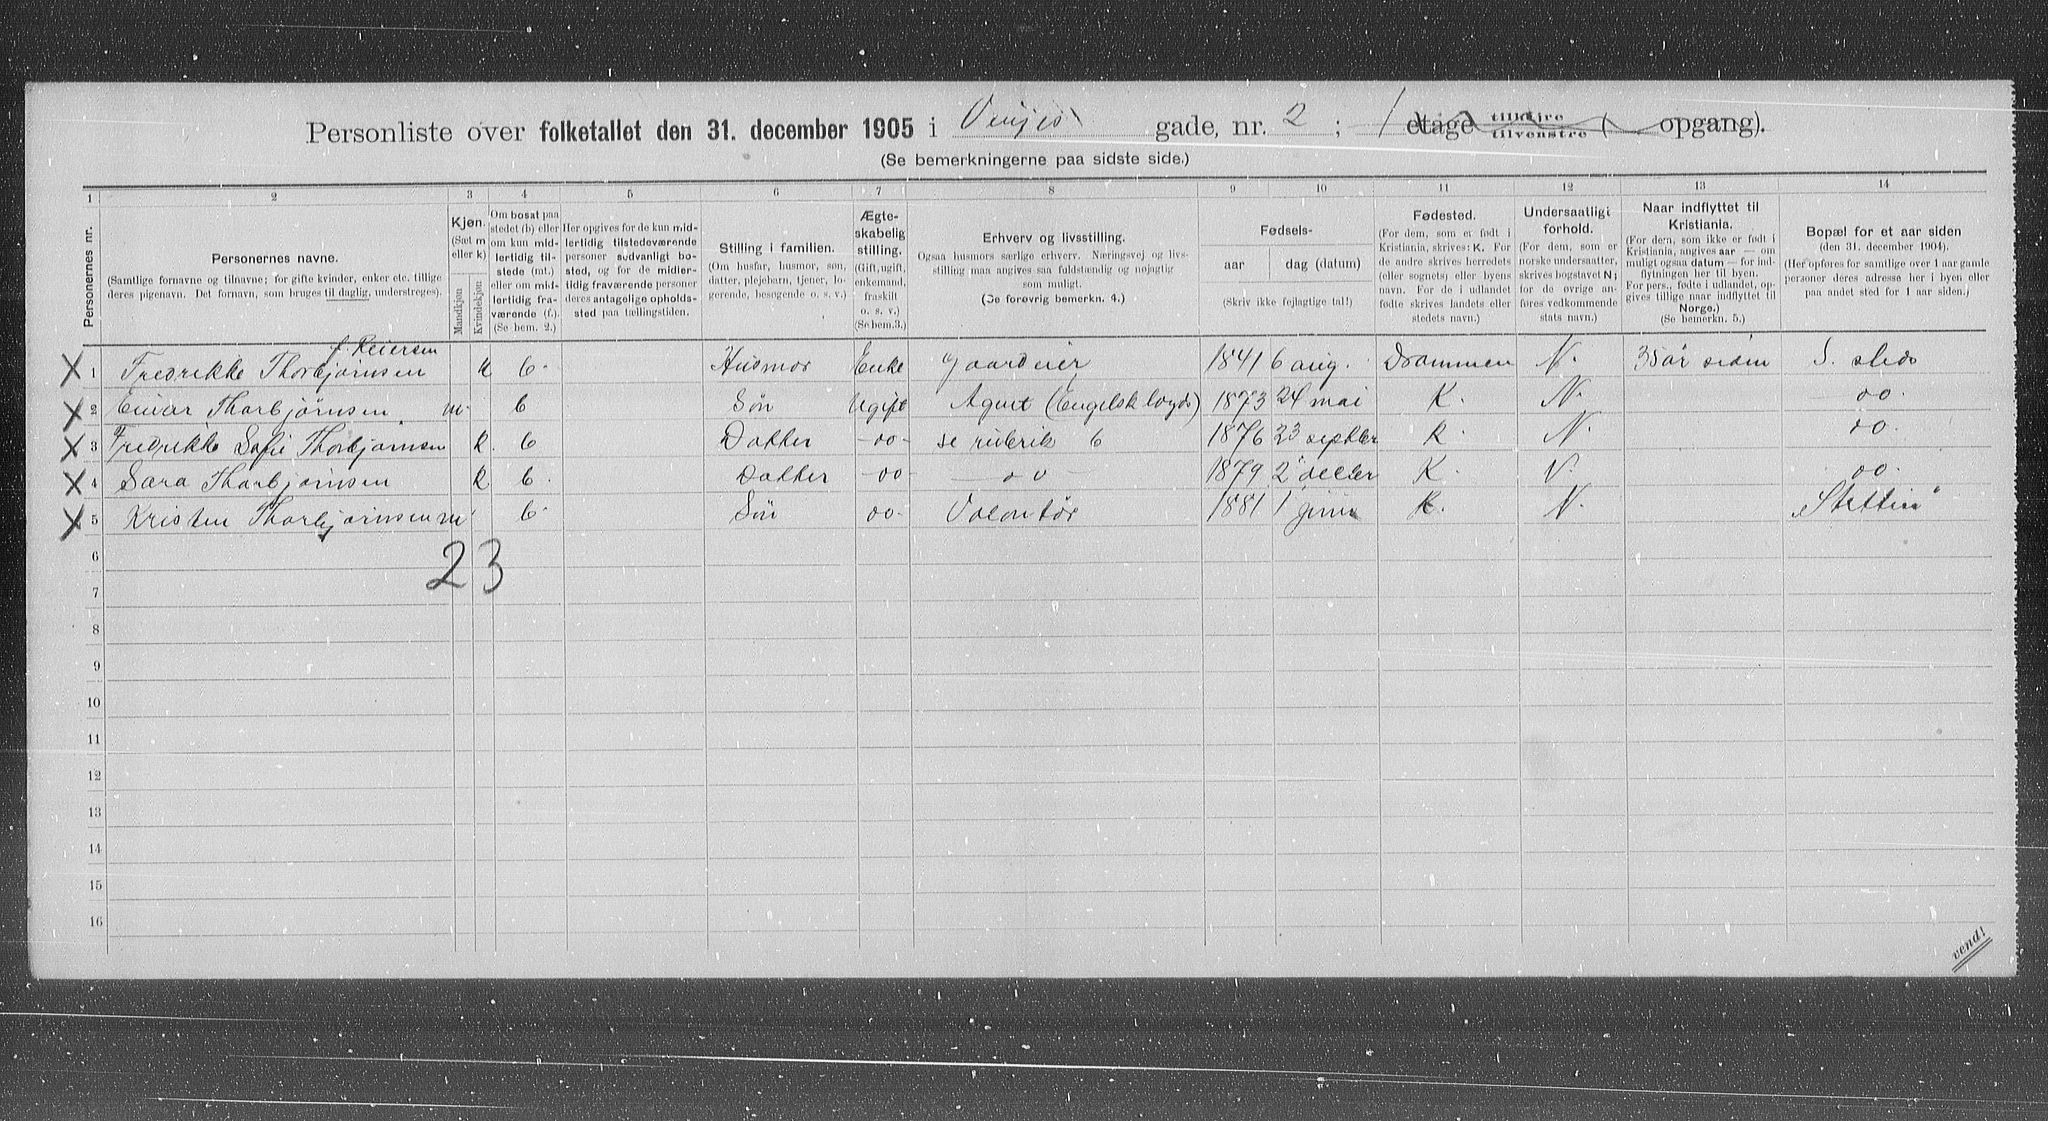 Personliste over folketallet den 31. december 1905 i Vinjes gade, nr. 2 ; 1 etage tilhøjre tilvenstre ( opgang).
(Se bemerkningerne paa sidste side.)
1 2 3 4 5 6 7 8 9 10 11 12 13 14
Personernes nr.
Personernes navne.
(Samtlige fornavne og tilnavne; for gifte kvinder, enker etc. tillige deres pigenavn. Det fornavn, som bruges til daglig, understreges).
Kjøn.
(Sæt m eller k)
Mandkjøn
Kvindekjøn
Om bosat paa stedet (b) eller om kun midlertidig tilstede (mt.) eller om midlertidig fraværende (f.) (Se bem. 2.)
Her opgives for de kun midlertidig tilstedeværende personer sudvanligt bosted, og for de midlertidig fraværende personer deres antagelige opholdssted paa tællingstiden.
Stilling i familien.
(Om husfar, husmor, søn, datter, plejebarn, tjener, logerende, besøgende o. s. v.)
Ægteskabelig stilling.
(Gift, ugift, enkemand, fraskilt o. s. v.) (Se bem. 3.)
Erhverv og livsstilling.
Ogsaa husmors særlige erhverv. Næringsvej og livsstilling maa angives saa fuldstændig og nøjagtig som muligt.
(Se forøvrig bemerkn. 4.)
Fødsels-
aar
dag (datum)
(Skriv ikke fejlagtige tal!)
Fødested.
(For dem, som er født i Kristiania, skrives: K. For de andre skrives herredets (eller sognets) eller byens navn. For de i udlandet fødte skrives landets eller stedets navn.)
Undersaatligt forhold.
(For dem, som er norske undersaatter, skrives bogstavet N; for de øvrige anføres vedkommende stats navn.)
Naar indflyttet til Kristiania.
(For dem, som ikke er født i Kristiania, angives aar — om muligt ogsaa datum — for indflytningen her til byen. For pers., fødte i udlandet, opgives tillige naar indflyttet til Norge.)
(Se bemerkn. 5.)
Bopæl for et aar siden
(den 31. december 1904)
(Her opføres for samtlige over 1 aar gamle personer deres adresse her i byen eller paa andet sted for 1 aar siden.)
f. Reiersen
X 1 Fredrikke Thorbjørnsen K b. Husmor Enke gaardeier 1841 6 aug. Drammen N. 35 år siden S. sted
X 2 Einar Thorbjørnsen m. b Søn Ugift Agent (Engelsk loyds) 1873 24 mai K. N. oo.
X 3 Fredrikke Sofie Thorbjørnsen K. b Datter -oo- se rubrik 6 1876 23 septber K. N. oo.
X 4 Sara Thorbjørnsen K b. Datter -oo- - oo - 1879 2 decber K. N. oo.
X 5 Kristen Thorbjørnsen m b. Søn oo- Volontør 1881 1 juni K. N. "Stettin"
2 3
6
7
8
9
10
11
12
13
14
15
16
vend!